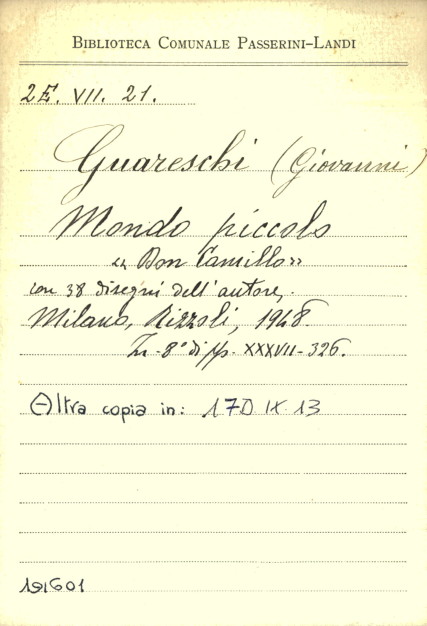 BIBLIOTECA COMUNALE PASSERINI-LANDI
2E. VII. 21.
Guareschi (Giovanni)
Mondo piccolo
"Don Camillo"
con 38 disegni dell'autore,.
Milano, Rizzoli, 1948.
In-8° di pp. XXXVII-326.
Altra copia in: 17D IX 13
191601